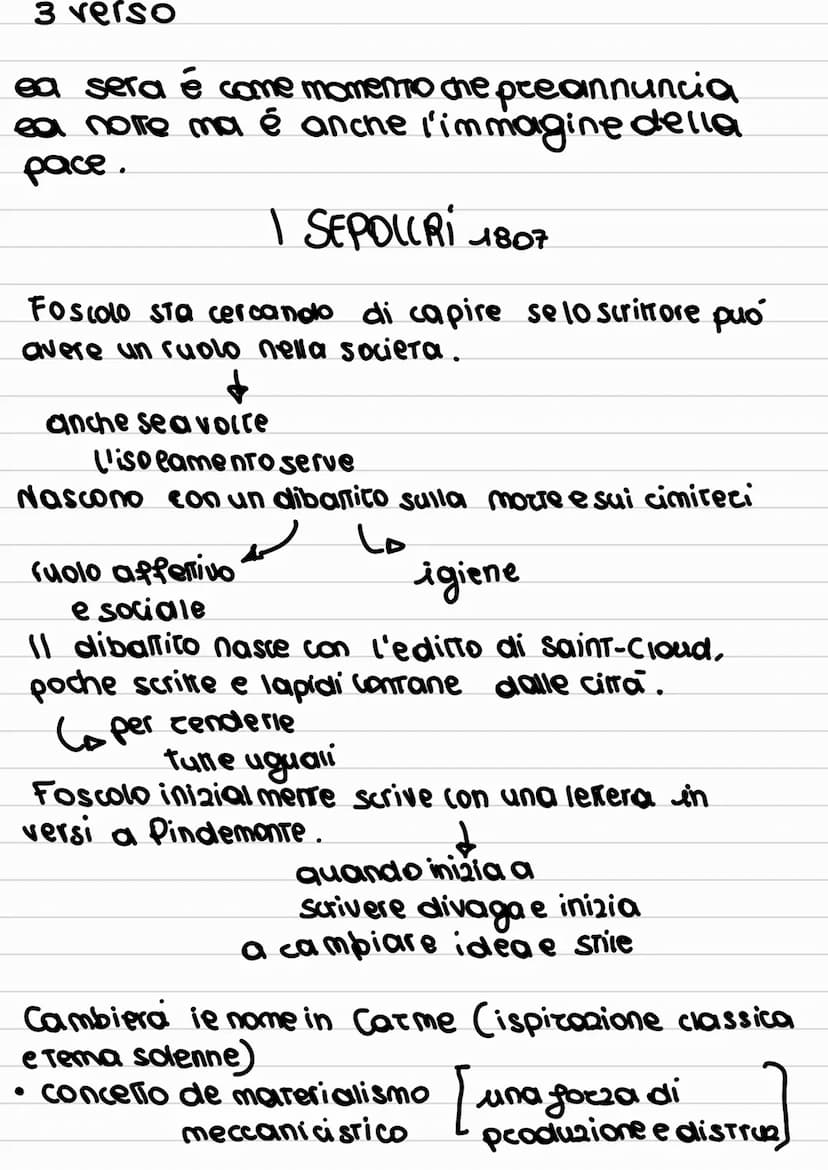 3 verso
la sera é come momento che preannuncia
la notte ma é anche l'immagine della
pace.
I SEPOLCRI 1807
Foscolo sta cercando di capire se lo scrittore puó
avere un ruolo nella societa.
anche se a volte
l'isolamento serve
Nascono con un dibattito sulla morte e sui cimiteri
ruolo affettivo
e sociale
igiene
Il dibattito nasce con l'editto di Saint-Cloud,
poche scritte e lapidi lontane dalle cittá.
per renderle
tutte uguali
Foscolo inizialmente scrive con una lettera in
versi a Pindemonte.
quando inizia a
scrivere divaga e inizia
a cambiare idea e stile
Cambierá il nome in Carme (ispirazione classica
e tema solenne)
• concetto de materialismo
meccanicistico
[una forza di
produzione e distruz]